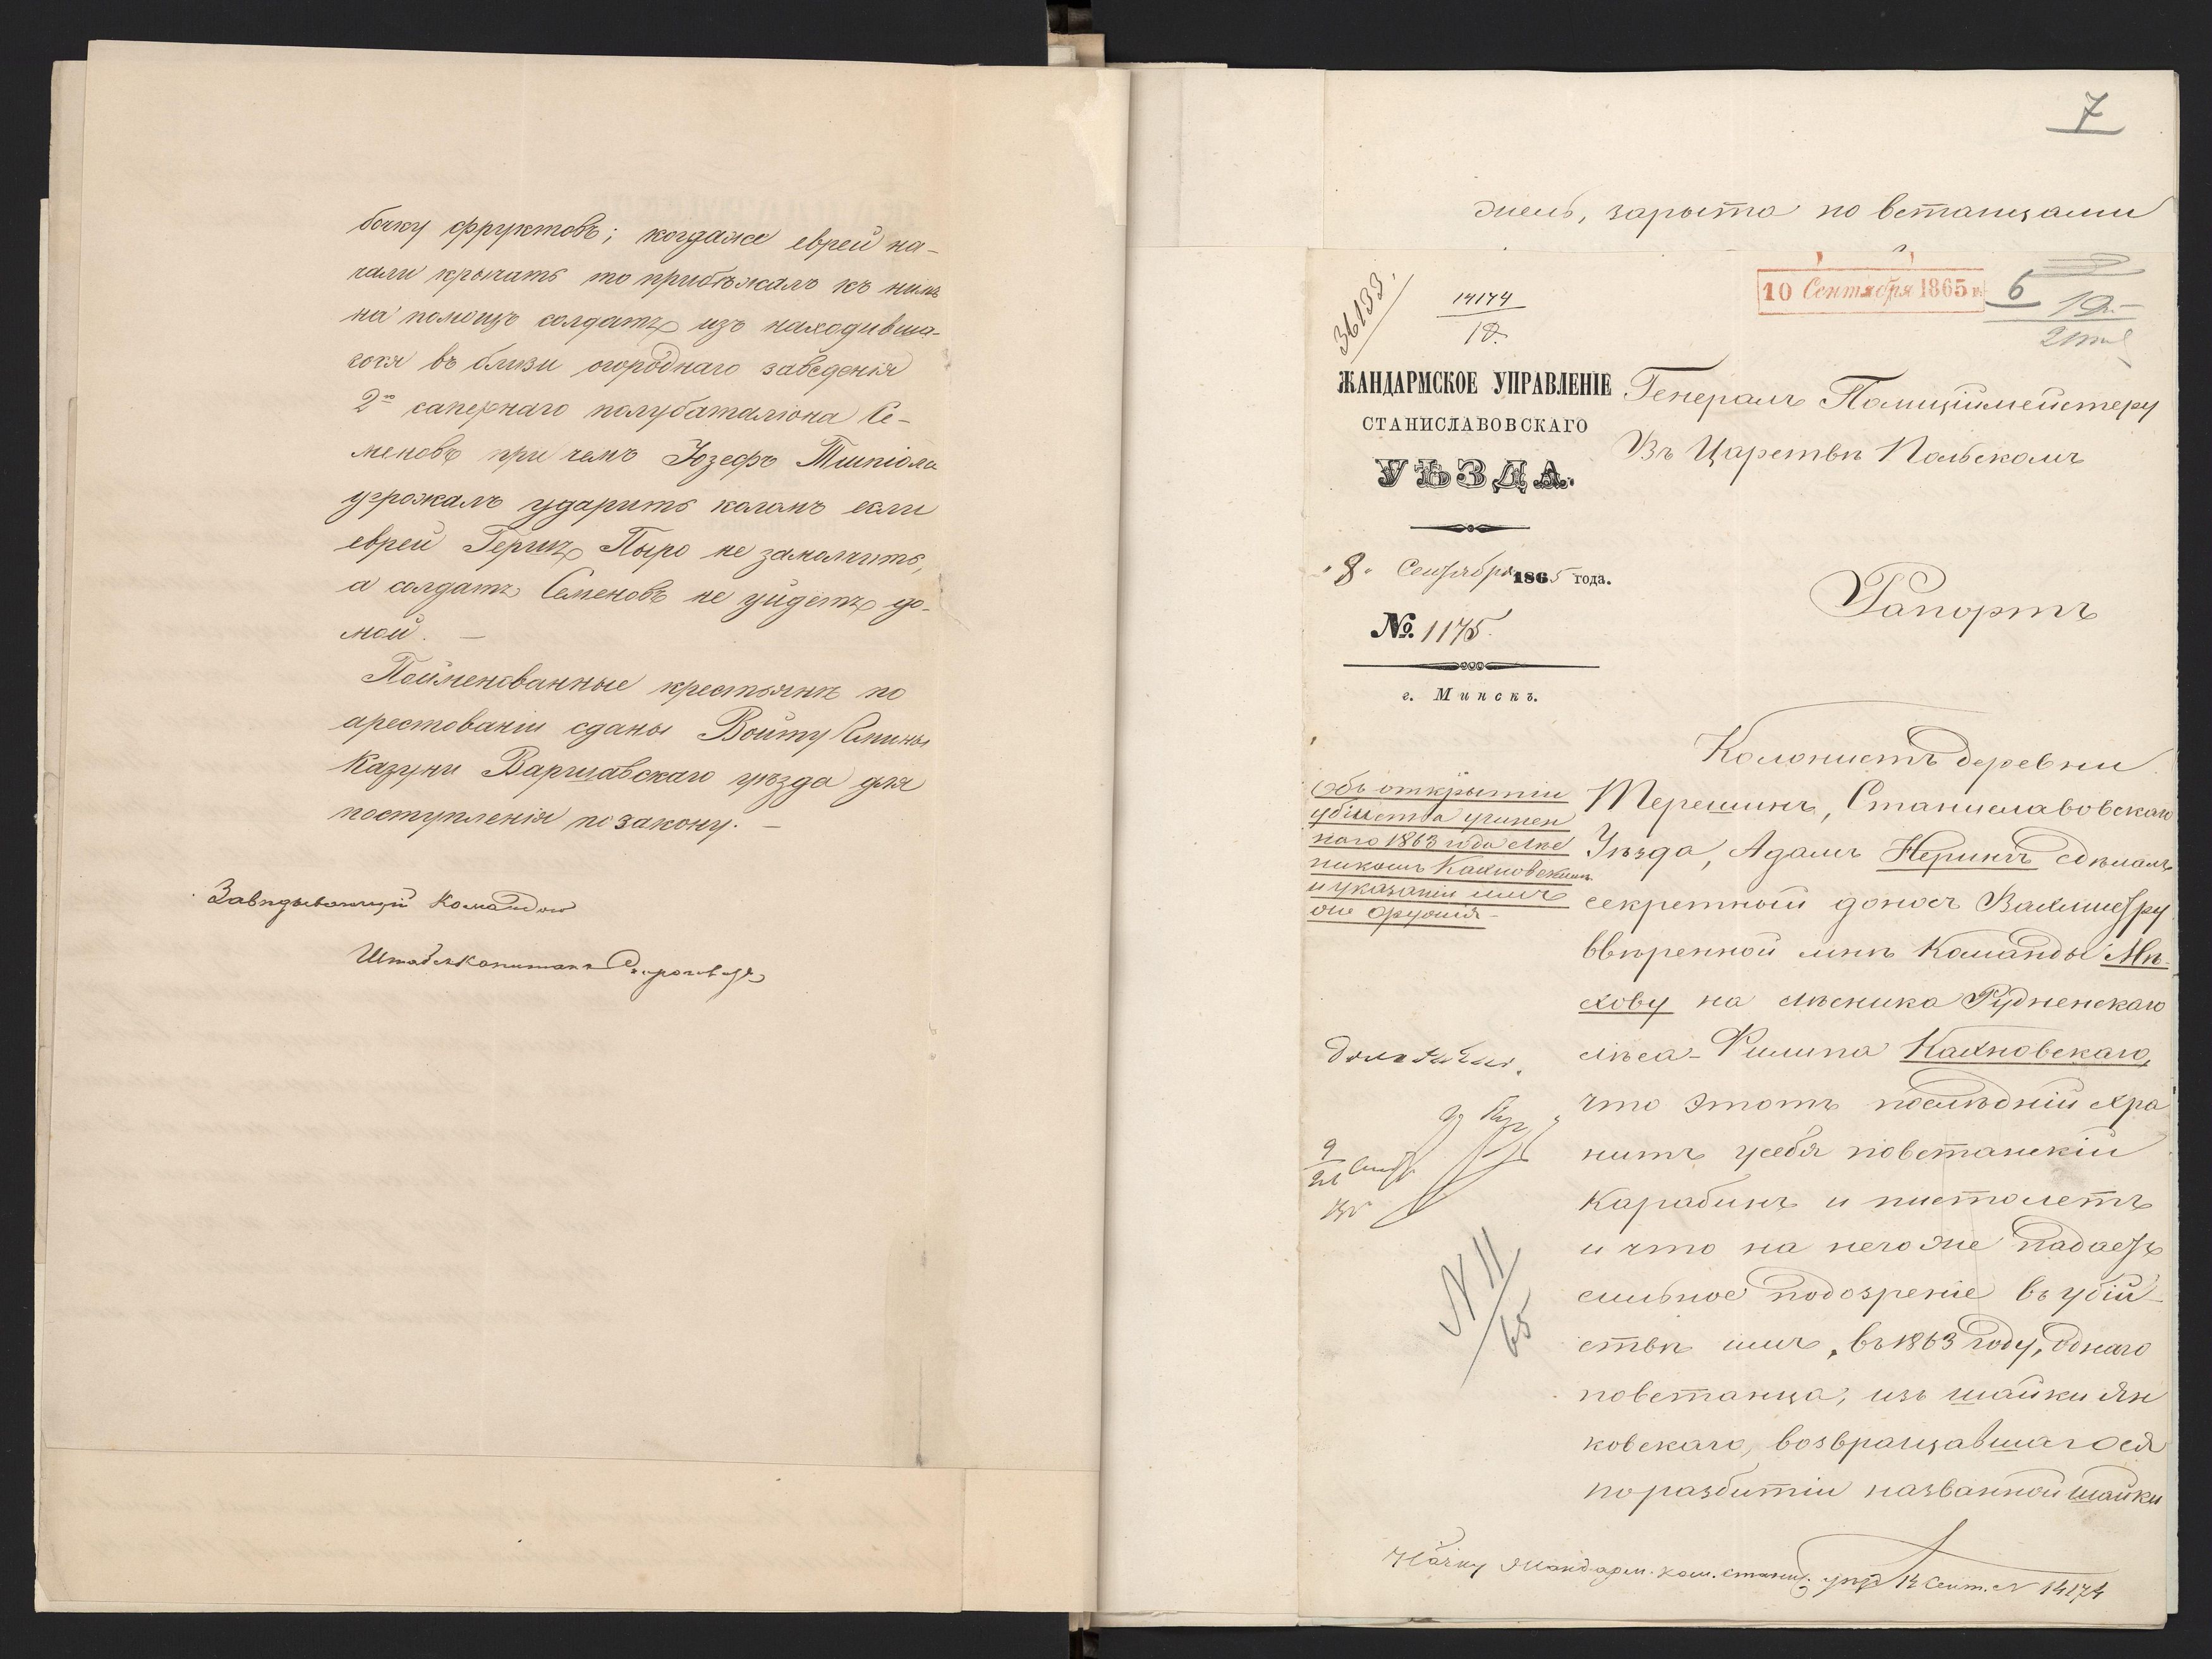 бочку фруктовъ; когдаже евреи на-
чали кричать то прибѣжалъ къ нимъ
на помощь солдатъ изъ находивша-
гося въ близи огороднаго заведенія
2го сапернаго полубаталіона Се-
меновъ при чемъ Юзефъ
угрожалъ ударить коломъ если
еврей Гершъ Пыро не замолчитъ,
а солдатъ Семеновъ не уйдетъ до-
мой. —
Поименованные крестьяне по
арестованіи сданы Войту Гмины
Казуни Варшавскаго уѣзда для
поступленія по закону. —
Завѣдывающій Командою
Штабсъ Капитанъ
7
жель, зарыта повстанцами
36133.
14174
18.
10 Сентября 1865 г.
6
19
ЖАНДАРМСКОЕ УПРАВЛЕНІЕ
СТАНИСЛАВОВСКАГО
УѢЗДА.
"8" Сентября 1865 года.
№. 1175.
г. Минскъ.
Генералъ Полиціймейстеру
Въ Царствѣ Польскомъ
Рапортъ
Объ открытіи
убійства учинен
наго 1863 года лѣс
никомъ Калновскимъ
и указаніи имъ
оружія —
Колонистъ деревни
Терешинъ, Станиславовскаго
Уѣзда, Адамъ Нерингъ сдѣлалъ
секретный доносъ Вахмистру
ввѣренной мнѣ Команды Мѣ-
хову на лѣсника Рудненскаго
лѣса - Филипа Калновскаго,
что этотъ послѣдній хра
нитъ у себя повстанскій
карабинъ и пистолетъ
и что на него же падаетъ
сильное подозреніе въ убій-
ствѣ имъ, въ 1863 году, однаго
повстанца, изъ шайки Ян
ковскаго, возвращавшагося
по разбитіи названной шайки
Доложено.
9
21 Сент
N 11
65
Нач-ку Жандарм. ком. станис. уѣзд 12 Сент. N 14174